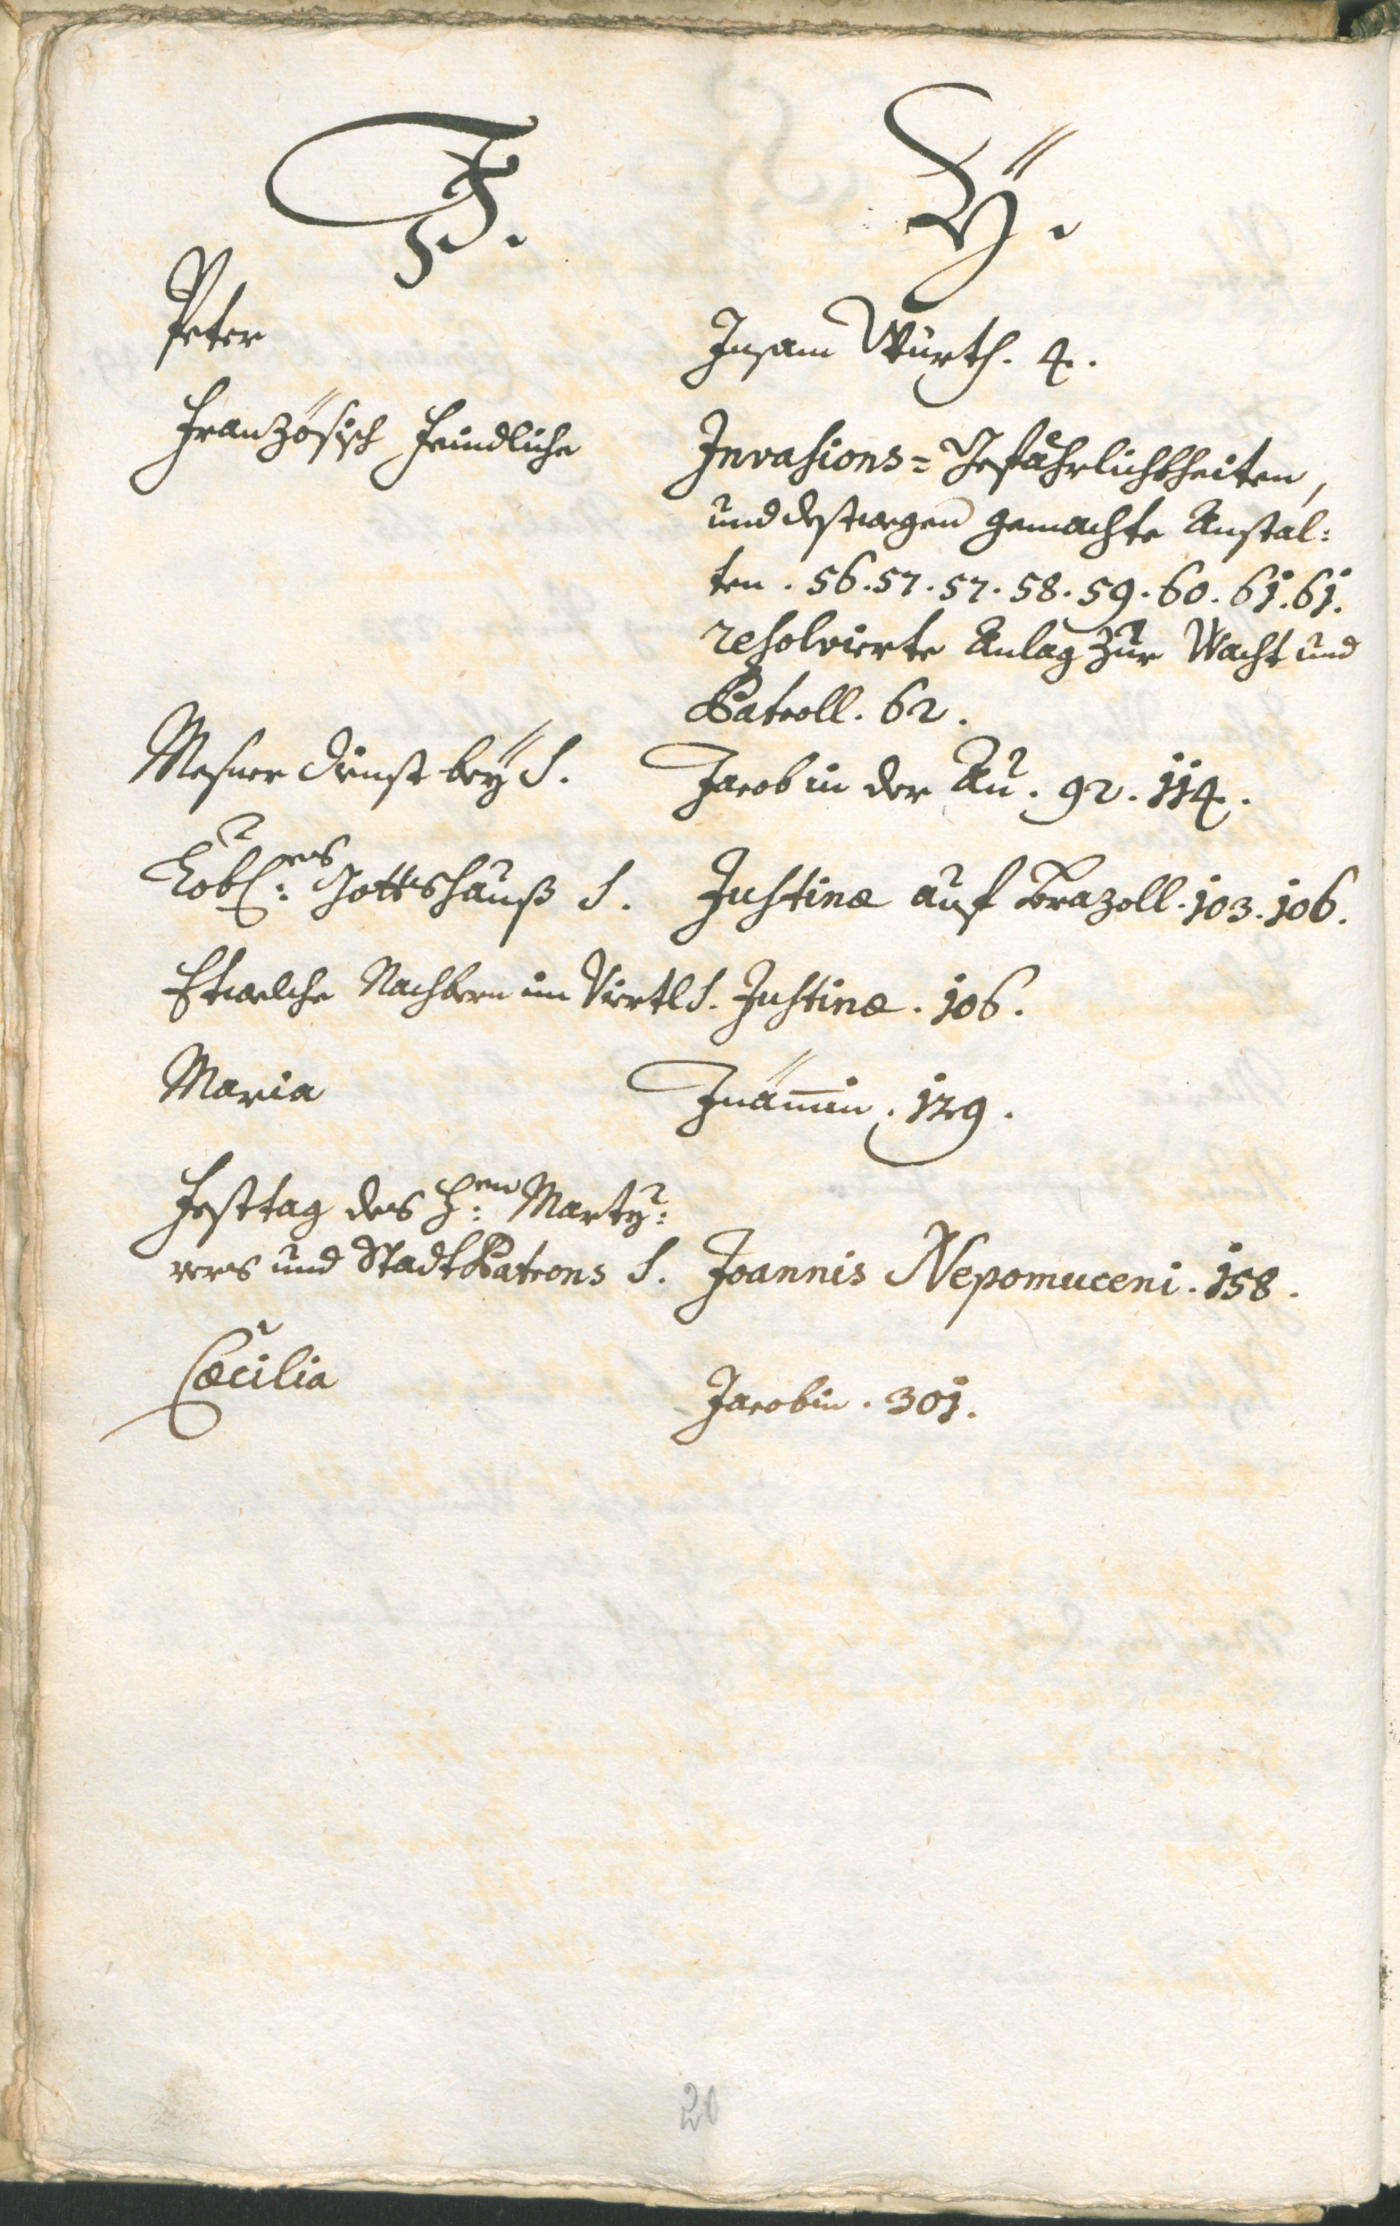 J. Ÿ.
Peter Insam Würth. 4.
Französisch feindliche Invasions= Gefährlichkheiten,
und destwegen gemachte Anstal:
ten. 56. 57. 57. 58. 59. 60. 61. 61.
resolvierte Anlag zur Wacht und
Patroll. 62.
Mesner dienst beÿ S. Jacob in der Au. 92. 114.
Löbl:es Gottshauß S. Justinæ auf Prazoll. 103. 106.
Etwelche Nachbern im Viertl S. Justinæ. 106.
Maria 129.
Festtag des H:en Marty:
rers und Stadt Patrons S. Joannis Nepomuceni. 158.
Cæcilia Jacobin. 301.
20